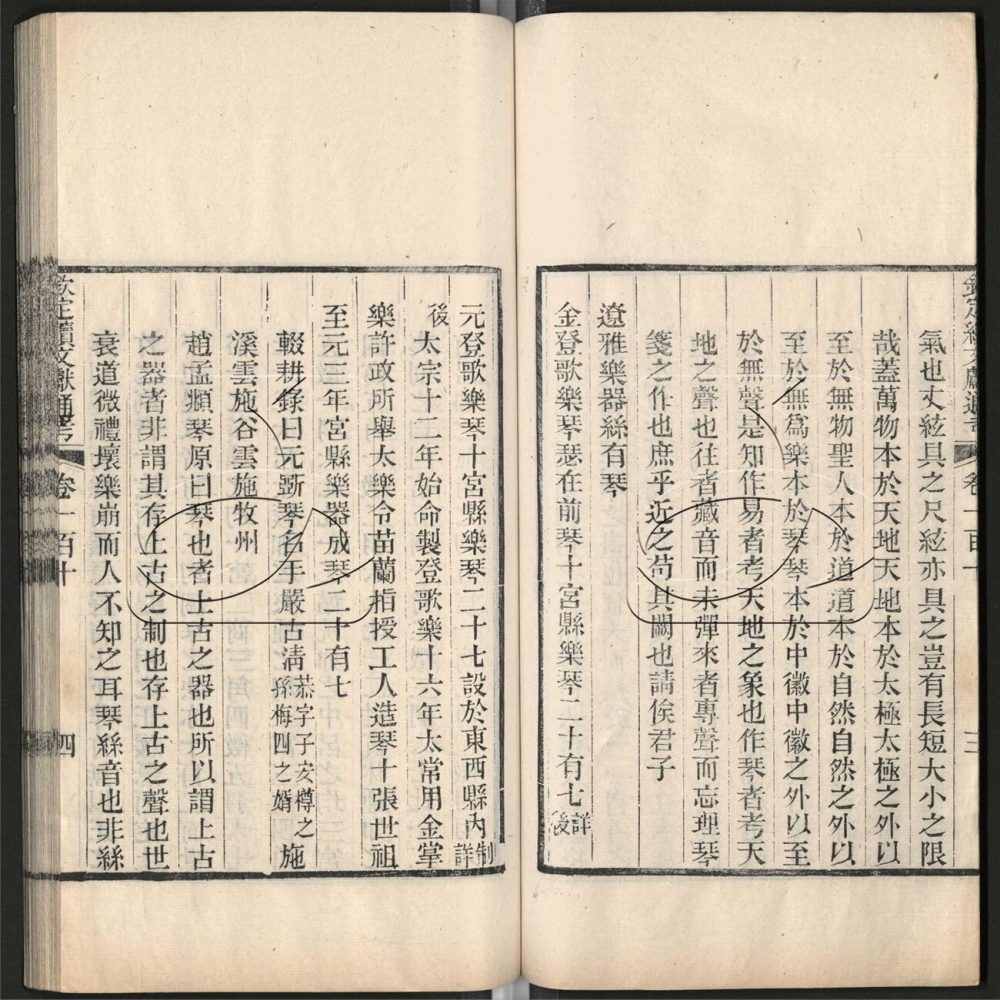 氣也丈絃具之尺絃亦具之豈有長短大小之限
哉蓋萬物本於天地天地本於太極太極之外以
至於無物聖人本於道道本於自然自然之外以
至於無爲樂本於琴琴本於中徽中徽之外以至
於無聲是知作易者考天地之象也作琴者考天
地之聲也往者藏音而未彈來者專聲而忘理琴
箋之作也庶乎近之苟其闕也請俟君子
遼雅樂器絲有琴
金登歌樂琴瑟在前琴十宮縣樂琴二十有七詳後
元登歌樂琴十宮縣樂琴二十七設於東西縣內制詳後
太宗十二年始命製登歌樂十六年太常用金掌
樂許政所舉太樂令苗蘭指授工人造琴十張世祖
至元三年宮縣樂器成琴二十有七
輟耕錄曰元斲琴名手嚴古清恭字子安樽之孫梅四之婿施
溪雲施谷雲施牧州
趙孟頫琴原曰琴也者上古之器也所以謂上古
之器者非謂其存上古之制也存上古之聲也世
衰道微禮壞樂崩而人不知之耳琴絲音也非絲
欽定續文獻通考 卷一百十 四